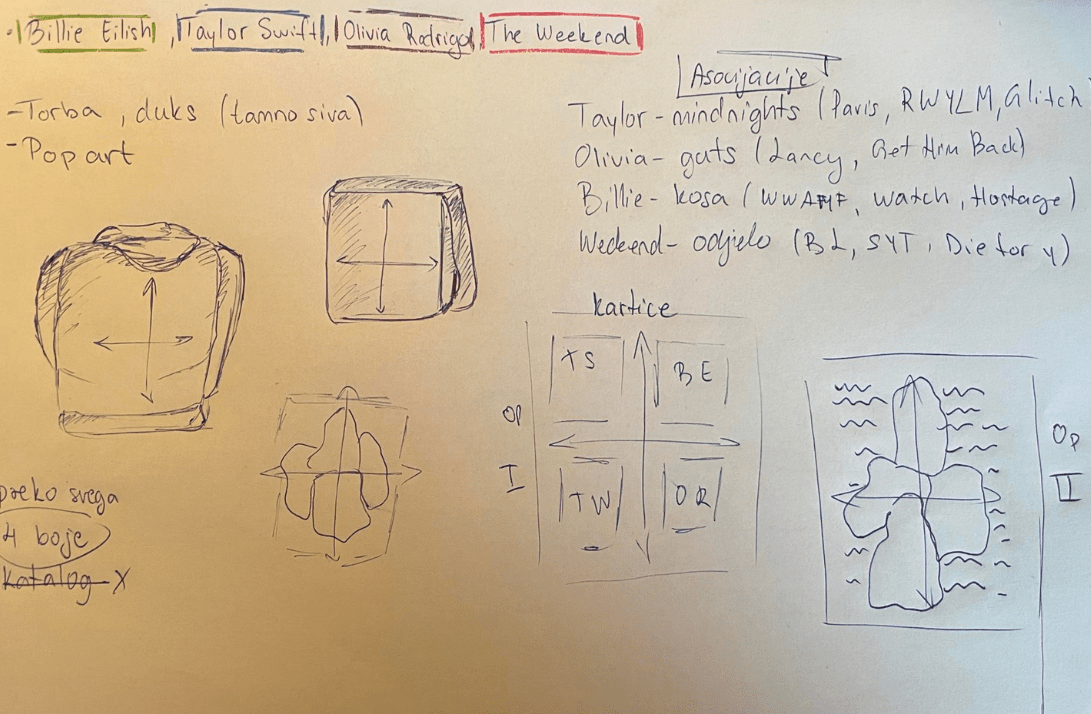 Billie Eilish, Taylor Swift, Olivia Rodrigo, The Weekend
- Torba, duks (tamno siva)
- Pop art
Asocijacije
Taylor - mindnights (Paris, RWYLM, Glitch
Olivia - guts (Lancy, Get Him Back)
Billie - kosa (WWAFMF, watch, Hostage)
Weekend - odijelo (BL, SYT, Die for y)
kartice
TS
BE
OP
I
TW
OR
OP
II
preko svega
4 boje
katalog X